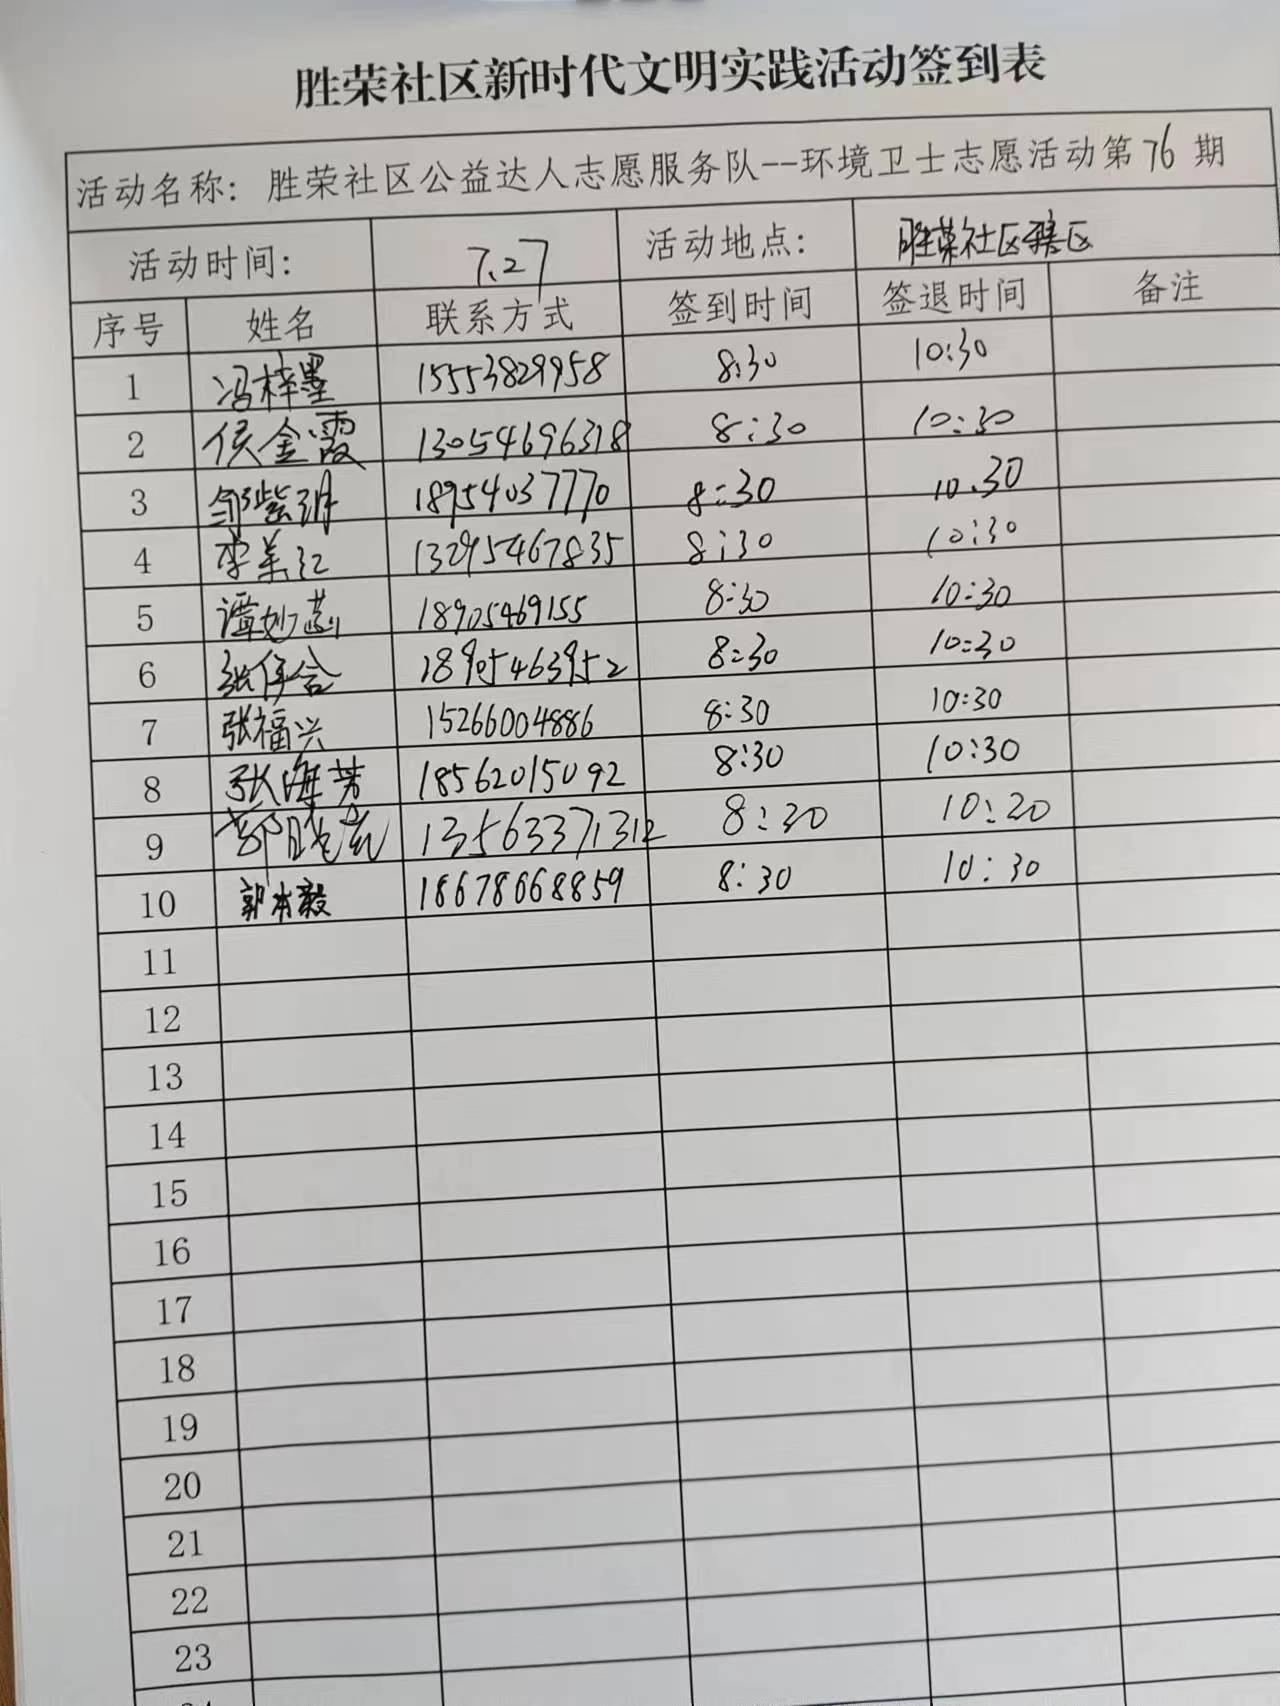 胜荣社区新时代文明实践活动签到表
活动名称: 胜荣社区公益达人志愿服务队--环境卫士志愿活动第 76 期
活动时间: 7.27 活动地点: 胜荣社区辖区
序号 姓名 联系方式 签到时间 签退时间 备注
1 冯梓墨 15553829958 8:30 10:30
2 侯金霞 13054696318 8:30 10:30
3 邹紫玥 18954037770 8:30 10.30
4 李美红 13295467835 8:30 10:30
5 谭妙 18905469155 8:30 10:30
6 张 18905463952 8:30 10:30
7 张福兴 15266004886 8:30 10:30
8 张海芳 18562015092 8:30 10:30
9 13563371312 8:30 10:20
10 郭本毅 18678668859 8:30 10:30
11
12
13
14
15
16
17
18
19
20
21
22
23